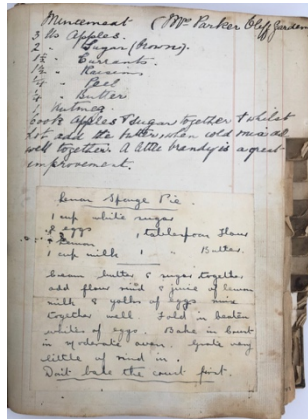 Mincemeat (Mrs Parker Cliff Gardens
3 lbs Apples.
2 " Sugar (brown).
1½ " Currants.
1½ " Raisins
¼ " Peel
¼ " Butter
1 Nutmeg.
Cook Apples & sugar together & whilst
hot add the butter, when cold mix all
well together. A little brandy is a great
improvement.
Lemon Sponge Pie.
1 cup white sugar
2 eggs 1 tablespoon flour
1 lemon
1 cup milk 1 " Butter.
Cream butter & sugar together
add flour rind & juice of lemon
milk & yolks of eggs mix
together well. Fold in beaten
whites of eggs. Bake in
in moderate oven. Grate very
little of rind in.
Don't bake the crust first.